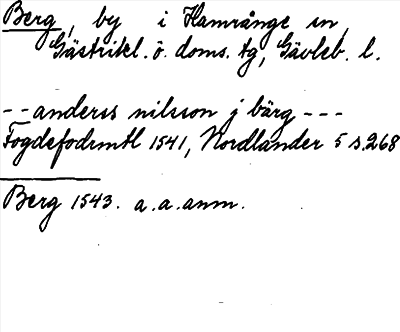 Berg, by i Hamrånge sn,
Gästrikl. ö. doms. tg, Gävleb. l.
-- anderss nilsson j bärg ---
Fogdefodrmtl 1541, Nordlander 5 s.268
Berg 1543. a.a.anm.